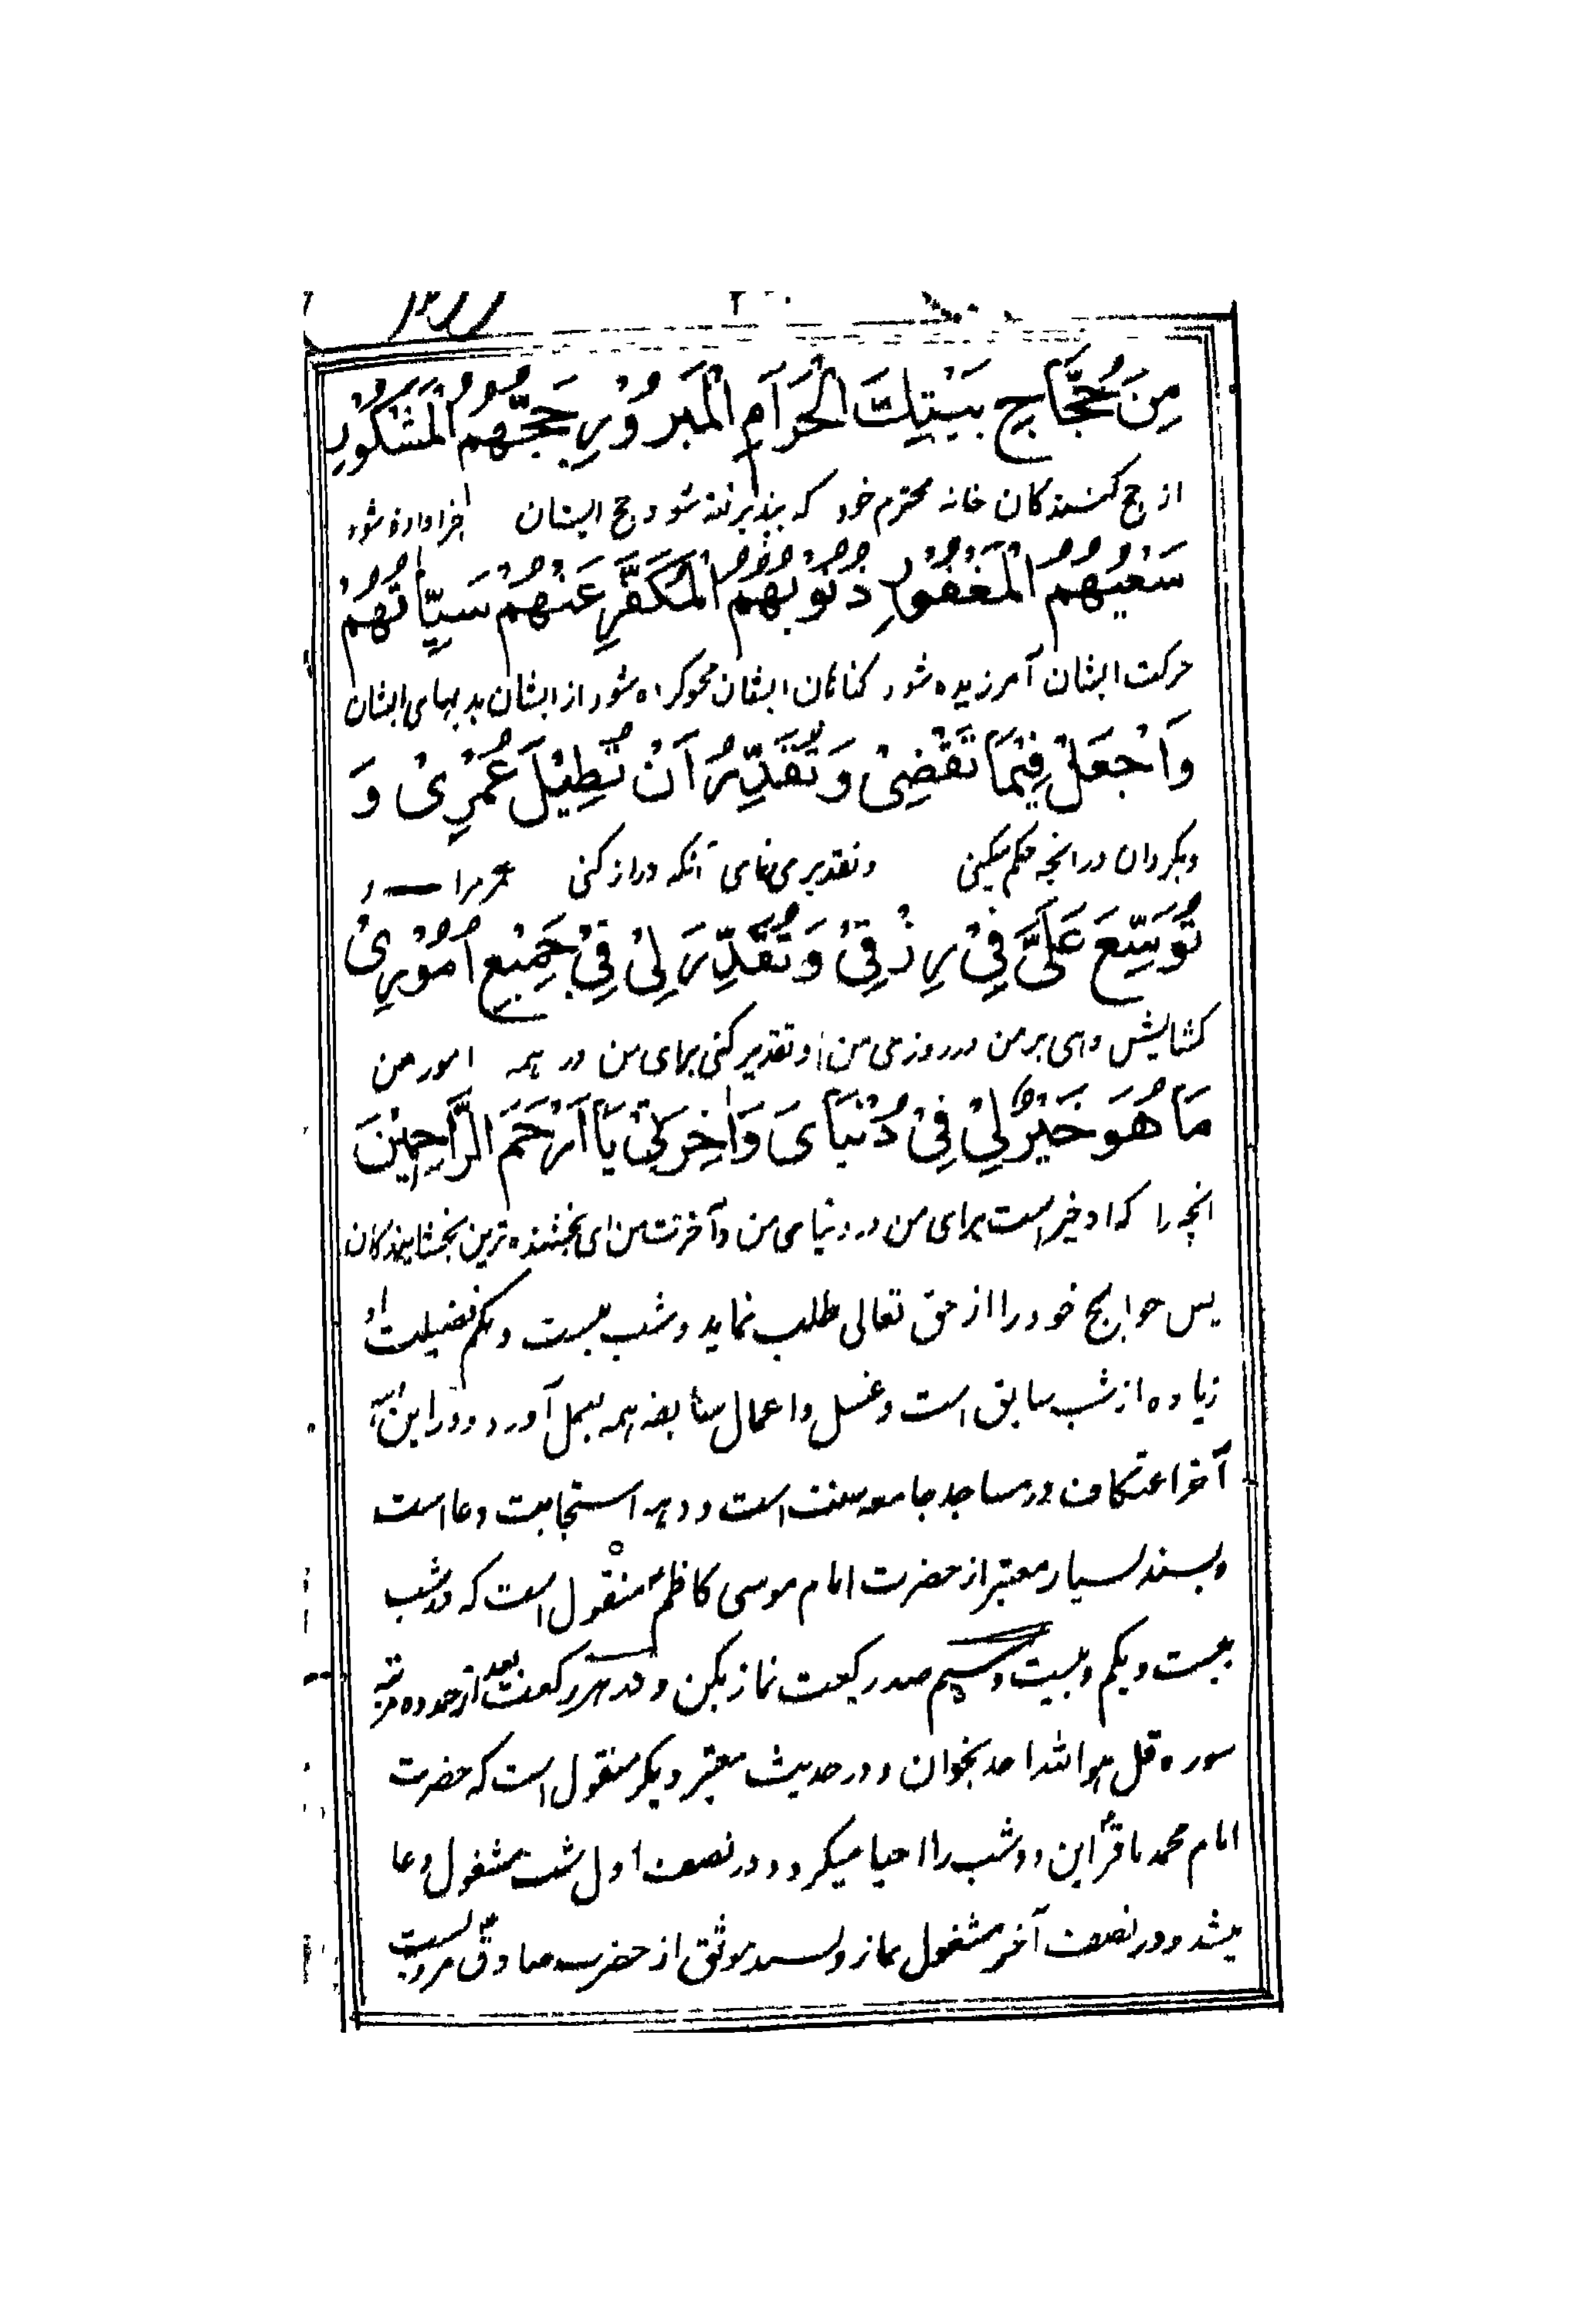 مِنَ حُجَّاجِ بَيْتِكَ الْحَرَامِ الْمَبْرُوْرِ حَجُّهُمُ الْمَشْكُوْرِ
از حج کنندکان خانه محترم خود که پذیرفته شود حج ایشان جزا داده شود
سَعْيُهُمُ الْمَغْفُوْرِ ذُنُوْبُهُمُ الْمُكَفَّرِ عَنْهُمْ سَيِّاٰتُهُمْ
حرکت ایشان آمرزیده شود کناهان ایشان محو کرده شود از ایشان بدیهای ایشان
وَاجْعَلْ فِيْمَا تَقْضِیْ وَتُقَدِّرُ اَنْ تُطِيْلَ عُمْرِیْ وَ
وبکردان در انچه حکم میکنی وتقدیر می نمای آنکه دراز کنی عمر مرا و
تُوَسِّعَ عَلَیَّ فِیْ رِزْقِیْ وَتُقَدِّرَ لِیْ فِیْ جَمِيْعِ اُمُوْرِیْ
کشایش دهی بر من در روزی من وتقدیر کنی برای من در همه امور من
مَا هُوَ خَيْرٌ لِیْ فِیْ دُنْيَایَ وَاٰخِرَتِیْ يَا اَرْحَمَ الرَّاحِمِيْنَ
انچه را که او خیر است برای من در دنیای من وآخرت من ای بخشنده ترین بخشایندکان
پس حوایج خود را از حق تعالی طلب نماید وشب بیست ویکم فضیلت او
زیاده از شب سابق است وغسل واعمال سابقه همه بعمل آورد ودر این
آخر اعتکاف در مساجد جامعه سنت است ودهه استجابت دعا است
وبسند بسیار معتبر از حضرت امام موسی کاظمؑ منقول است که در شب
بیست ویکم وبیست وسیم صد رکعت نماز بکن ودر هر رکعت بعد از حمد ده مرتبه
سوره قل هو الله احد بخوان ودر حدیث معتبر دیکر منقول است که حضرت
امام محمد باقرؑ این دو شب را احیا میکرد ودر نصف اول شب مشغول دعا
میشد ودر نصف آخر مشغول نماز وبسند موثق از حضرت صادقؑ مرویست